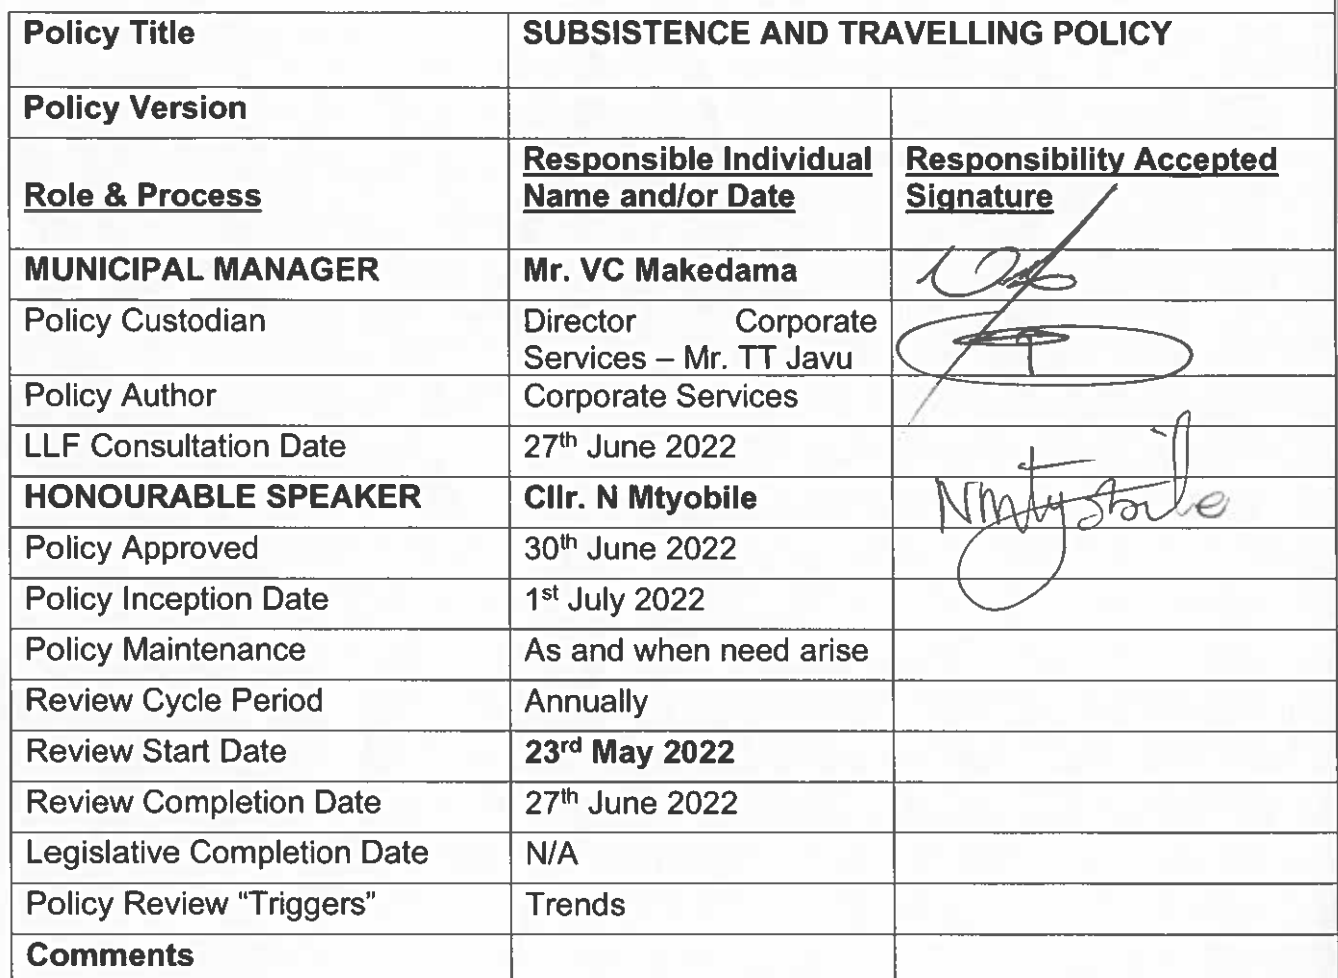 Policy Title SUBSISTENCE AND TRAVELLING POLICY
Policy Version
Role & Process Responsible Individual Name and/or Date Responsibility Accepted Signature
MUNICIPAL MANAGER Mr. VC Makedama
Policy Custodian Director Corporate Services – Mr. TT Javu
Policy Author Corporate Services
LLF Consultation Date 27th June 2022
HONOURABLE SPEAKER Cllr. N Mtyobile Nmtyobile
Policy Approved 30th June 2022
Policy Inception Date 1st July 2022
Policy Maintenance As and when need arise
Review Cycle Period Annually
Review Start Date 23rd May 2022
Review Completion Date 27th June 2022
Legislative Completion Date N/A
Policy Review “Triggers” Trends
Comments